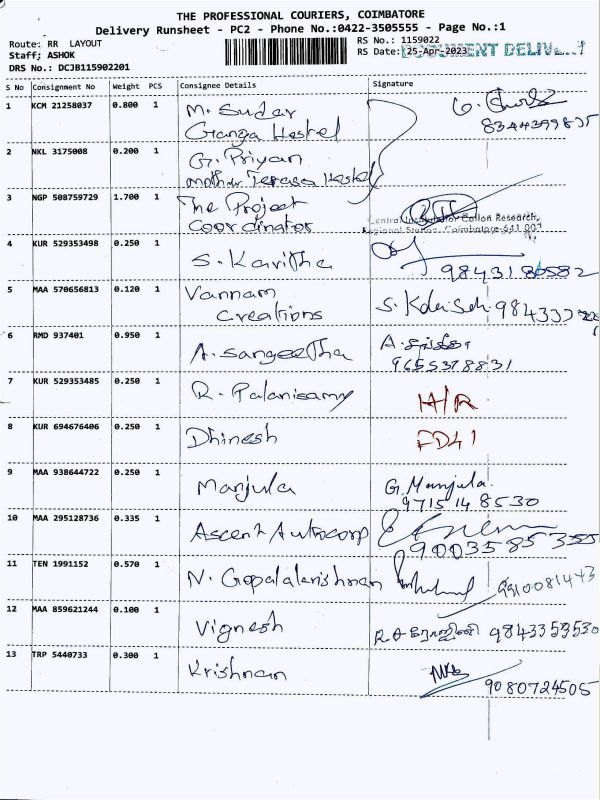 THE PROFESSIONAL COURIERS, COIMBATORE
Delivery Runsheet - PC2 - Phone No.:0422-3505555 - Page No.:1
Route: RR LAYOUT
RS No.: 1159022
Staff: ASHOK
RS Date: 25-Apr-2023
DOCUMENT DELIV
DRS No.: DCJB115902201
S No Consignment No Weight PCS Consignee Details Signature
1 KCM 21258037 0.800 1 M. Sudar
Ganga Hostel 8344399835
2 NKL 3175008 0.200 1 G. Priyan
mother Teresa Hostel
3 NGP 508759729 1.700 1 The Project
Coordinator
Central Institute for Cotton Research,
Regional Station, Coimbatore-641 003
4 KUR 529353498 0.250 1 S. Kavitha
5 MAA 570656813 0.120 1 Vannam
Creations
6 RMD 937401 0.950 1 A. Sangeetha
9655378831
7 KUR 529353485 0.250 1 R. Palanisamy H/R
8 KUR 694676406 0.250 1 Dhinesh FD41
9 MAA 938644722 0.250 1 Manjula G. Manjula.
9715148530
10 MAA 295128736 0.335 1 Ascent Autocorp
9003585355
11 TEN 1991152 0.570 1 N. Gopalakrishnan
12 MAA 859621244 0.100 1 Vignesh 9843353530
13 TRP 5440733 0.300 1 Krishnan
9080724505